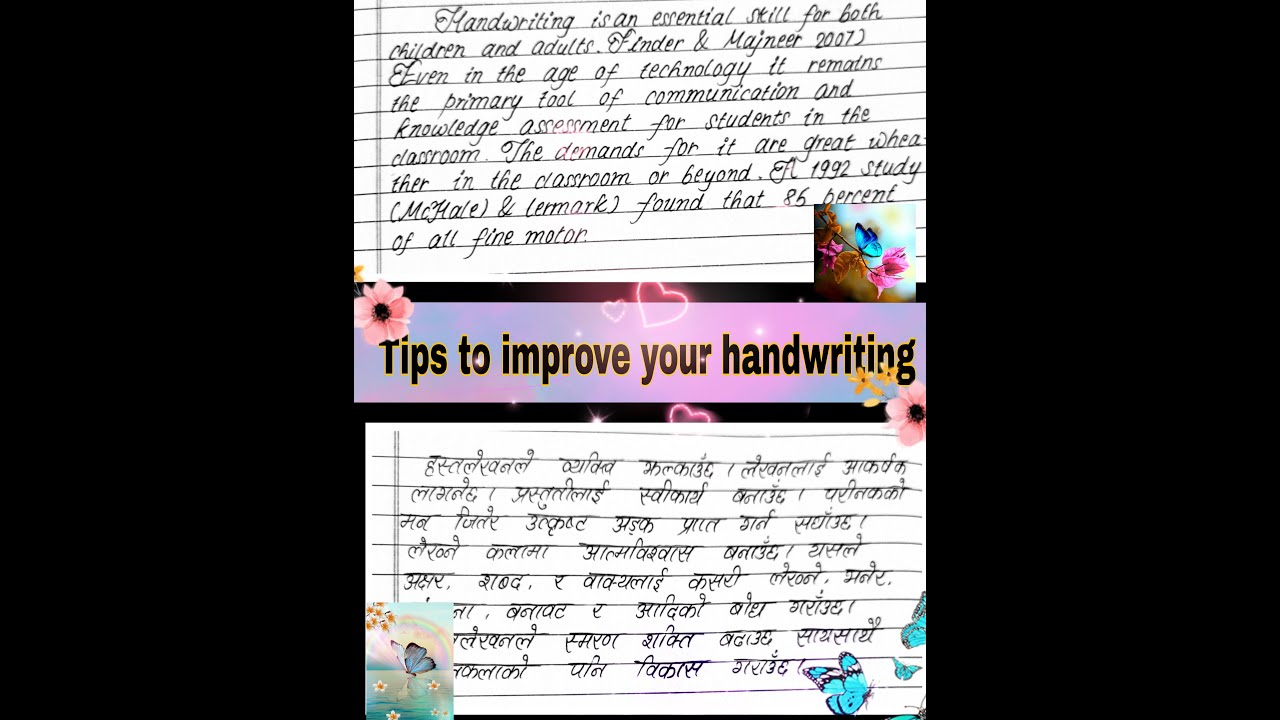 Handwriting is an essential skill for both
children and adults. Finder & Majneer 2007)
Even in the age of technology it remains
the primary tool of communication and
knowledge assessment for students in the
classroom. The demands for it are great whea-
ther in the classroom or beyond. A 1992 study
(McHale) & Lermark) found that 85 percent
of all fine motor.
Tips to improve your handwriting
हस्तलेखनले व्यक्तित्व झल्काउँछ । लेखनलाई आकर्षक
लागनेछ । प्रस्तुतीलाई स्वीकार्य बनाउँछ । परीनकको
मन जितेर उत्कृष्ट अङ्क प्राप्त गर्न सघाँउछ ।
लेख्ने कलामा आत्मविश्वास बनाउँछ । यसले
अक्षर, शब्द, र वाक्यलाई कसरी लेख्ने, भनेर,
बनावट र आदिको बोध गराँउछ ।
स्मरण शक्ति बढाउछ साथसाथै
पनि विकास गराउँछ ।